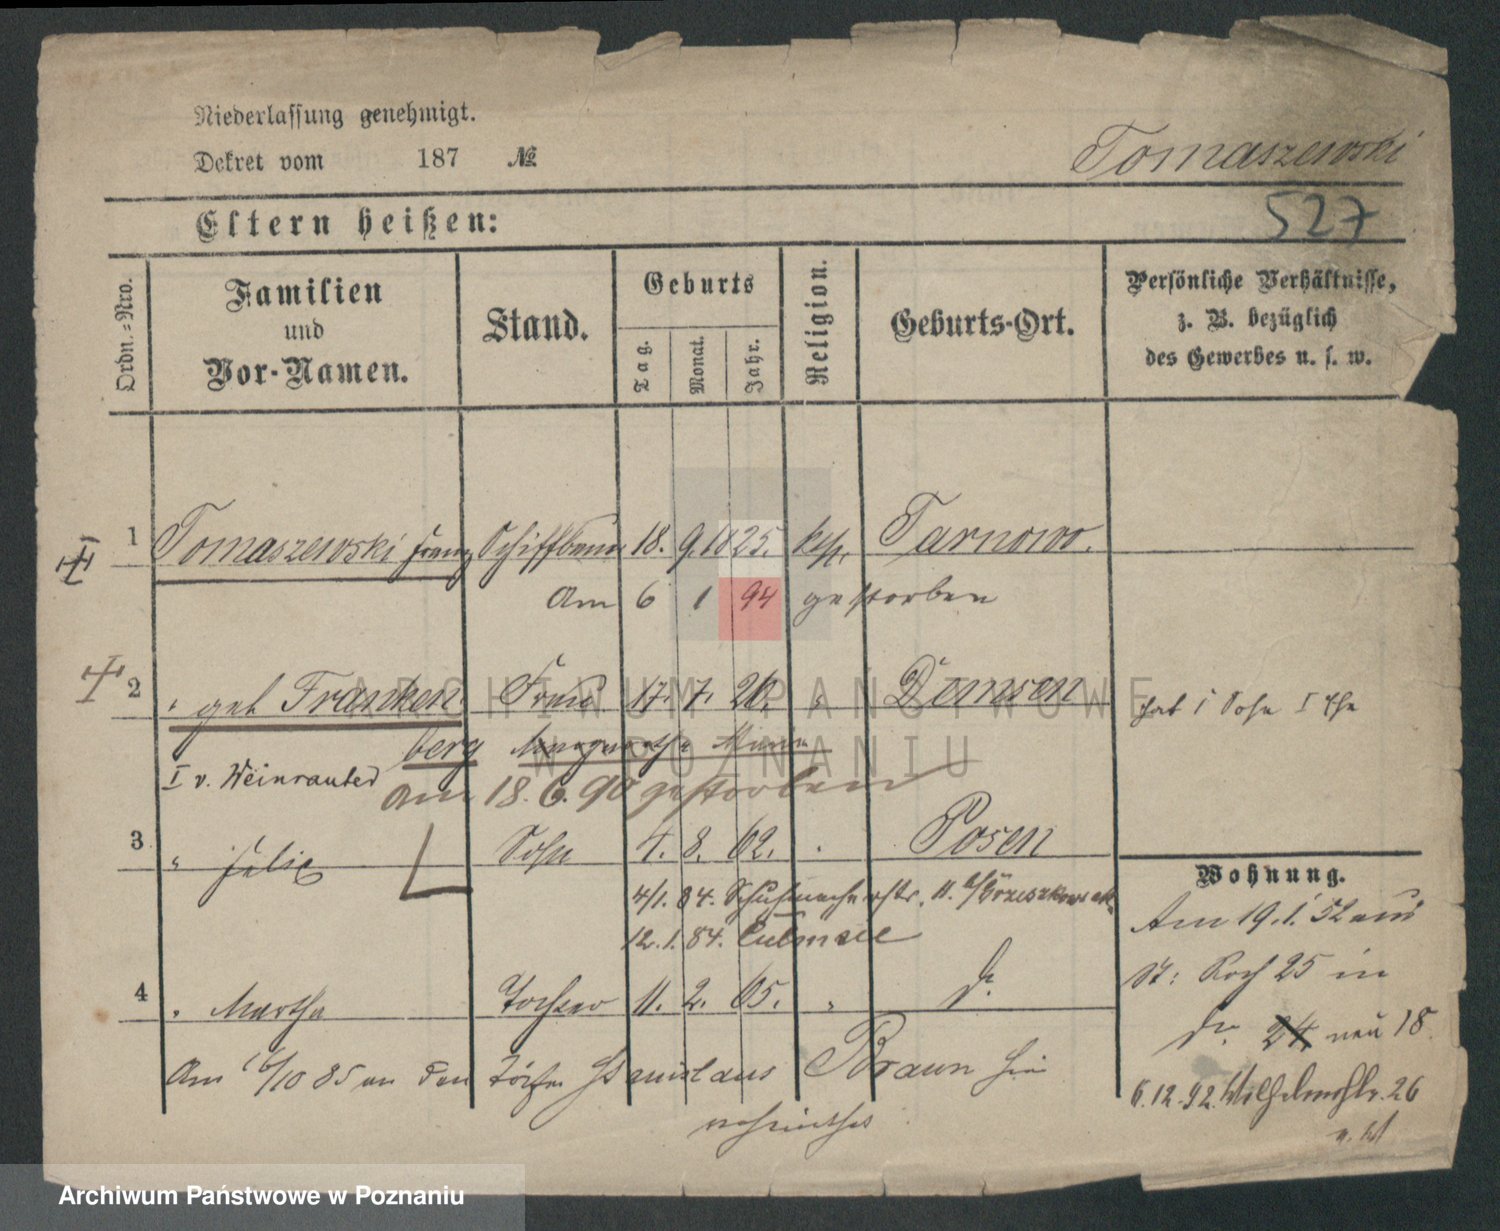 Niederlassung genehmigt.
Dekret vom 187 №
Tomaszewski
527
Eltern heißen:
Ordn.=Nro.
Familien
und
Vor-Namen.
Stand.
Geburts
Tag.
Monat.
Jahr.
Religion.
Geburts-Ort.
Persönliche Verhältnisse,
z. B. bezüglich
des Gewerbes u. s. w.
1 Tomaszewski Franz Schiffbauer 18. 9. 1825. kath. Tarnowo.
Am 6 1 94 gestorben
2 " geb Franken Frau 17. 7. 26. " Demsen hat 1 Sohn 1
berg Margarethe
I v. Weinrauter
Am 18. 6. 90 gestorben
3 " Felix Sohn 4. 8. 62. Posen
4/1. 84. 11.
12. 1. 84. Culmsee
Wohnung.
Am 19. 1. 52 aus
St: Roch 25 in
4 " Martha Tochter 11. 2. 65. " do.
do. 24 neu 18
Am 16/10 85 an den Stanislaus Braun hier
verheirathet
6.12.92. Wilhelmstr. 26
ARCHIWUM PAŃSTWOWE
W POZNANIU
Archiwum Państwowe w Poznaniu